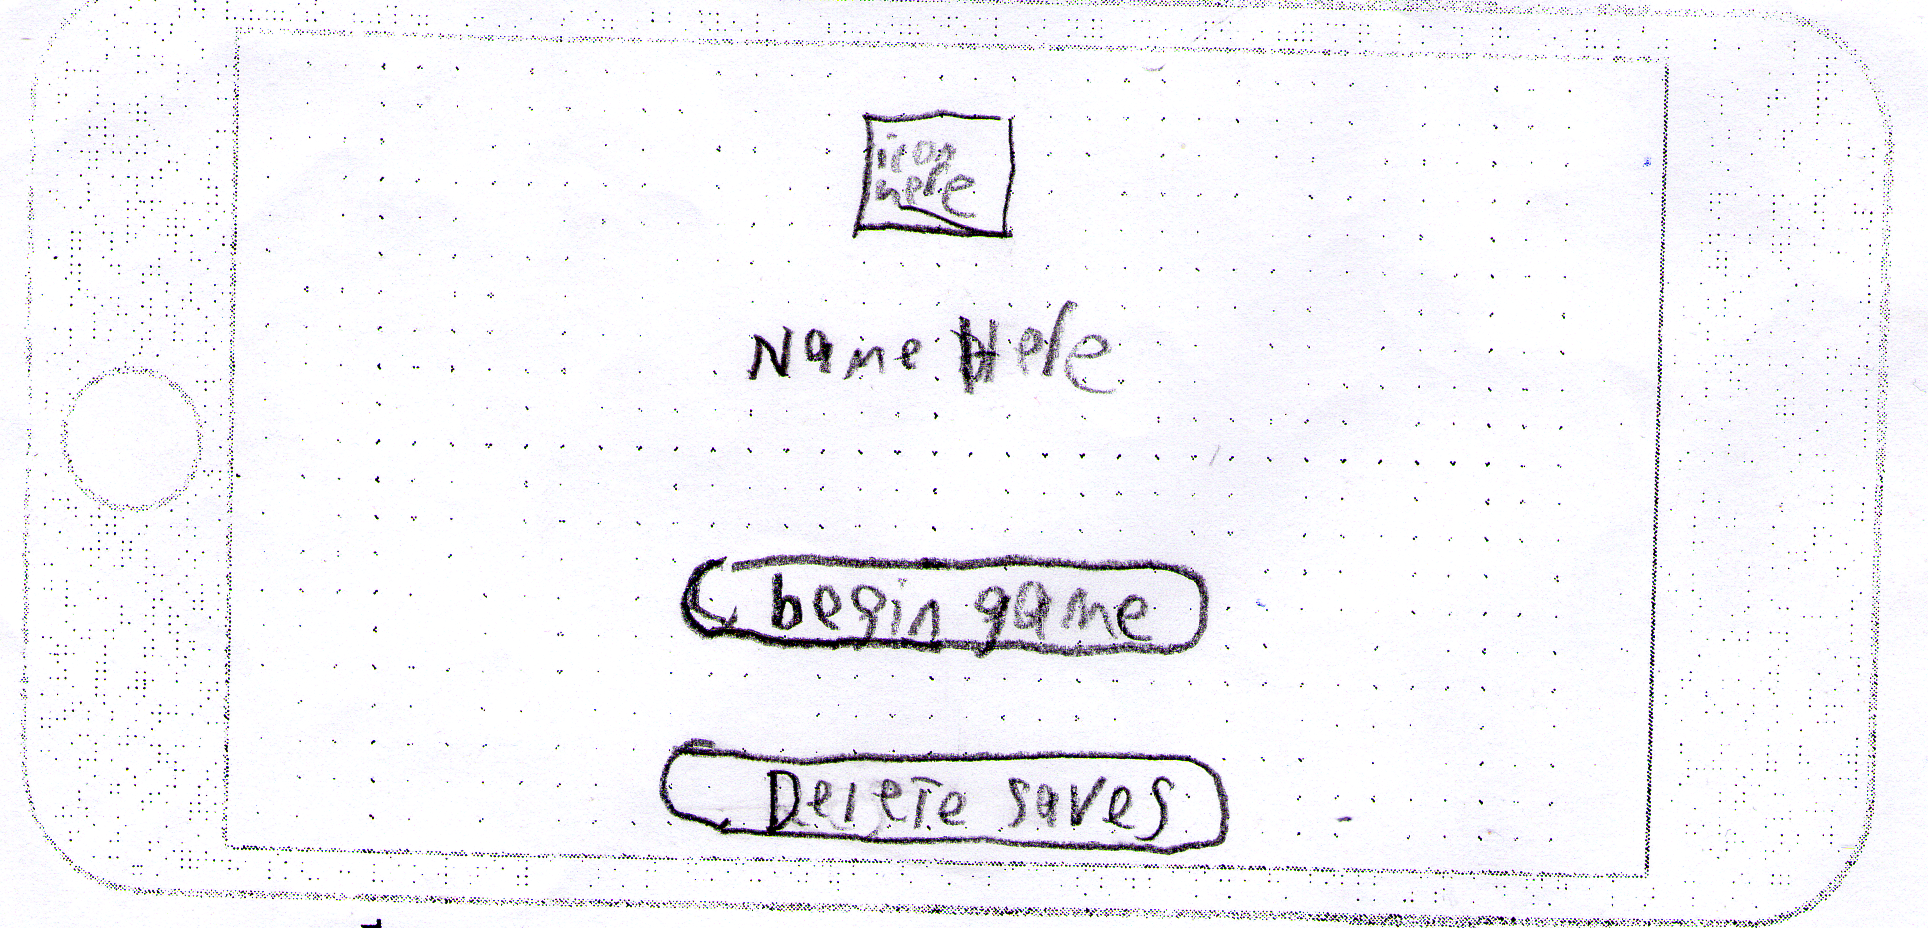 icon
here
Name Here
begin game
Delete saves